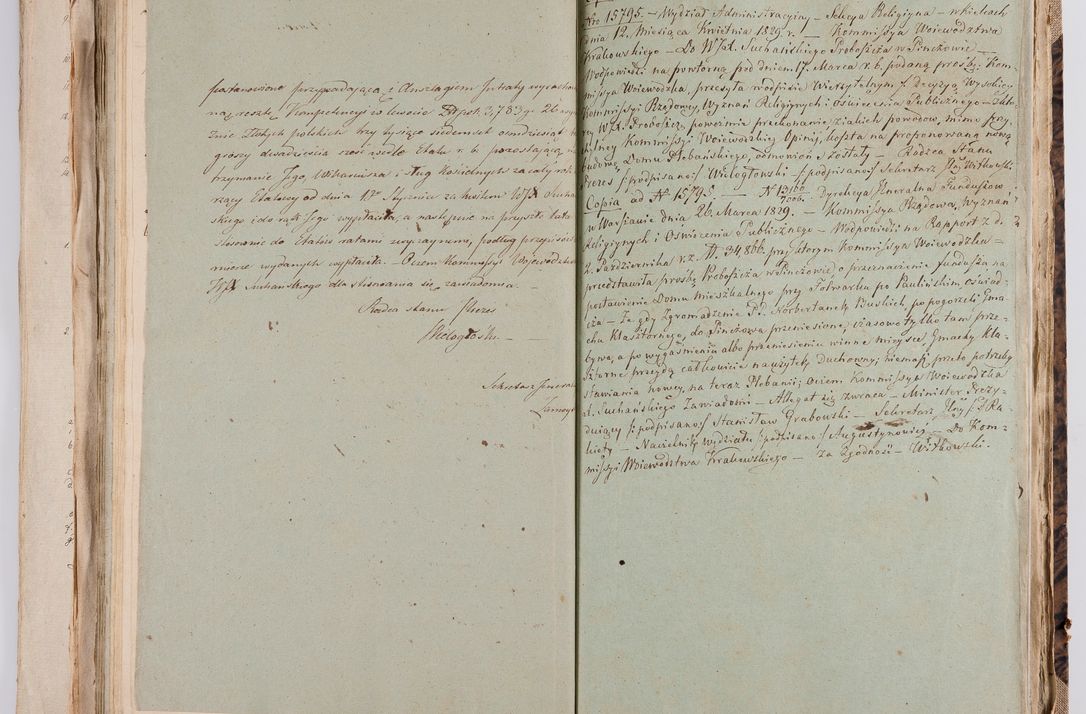 postanowiono przypadającą i Anszlagiem Intraty wyracho-
ną resztę Kompetencyi w kwocie Złp. 3,783 gr. 26
Złotych polskich trzy tysiące siedemset ośmdziesiąt
groszy dwadzieścia sześć wedle Etatu r. b. pozostającą na
trzymanie Jego, Wikariusza i sług kościelnych za cały rok
Etatowy od dnia 1go Stycznia za kwitem WJX Sucha-
skiego i do rąk Jego wypłaciła, a następnie na przyszłe lata
stosownie do Etatów ratami zwyczaynemi, podług przepisów
wydanych wypłaciła. – O czem Kommissyi Wojewódzka
WJX Suchańskiego dla stosowania się zawiadamia. –
Radca stanu Prezes
Wielogłowski. –
Sekretarz Jeneralny
Nro 15795. – Wydział Administracyjny – Sekcya Religijna – w Kielcach
dnia 12. Miesiąca Kwietnia 1829 r. – Kommissya Woiewództwa
Krakowskiego – Do WJX. Suchańskiego Proboszcza w Pinczowie –
W odpowiedzi na powtórną pod dniem 17. Marca r. b. podaną prosbę. Kom-
missya Woiewódzka, przesyła w odpisie Wierzytelnym Decyzyą Wysokiey
Kommissyi Rządowey Wyznań Religijnych i Oświecenia Publicznego – Któ-
ry WJX. Proboszcz, poweźmie przekonanie z iakich powodów, mimo przy-
chylney Kommissyi Woiewódzkiey Opinij, koszta na proponowaną nową
budowę Domu Plebańskiego, odmówione zostały – Radzca Stanu
Prezes /:podpisano:/ Wielogłowski – /:podpisano:/ Sekretarz Jlny Witkowski
Copia ad N 15795 – N 13160/7006. Dyrekcya Generalna Funduszów
w Warszawie dnia 26. Marca 1829. – Kommissya Rządowa, Wyznań
Religijnych i Oświecenia Publicznego – W odpowiedzi na Rapport z d.
2. Października r. z. N. 34,866. przy którym Kommissya Woiewódzka –
przedstawiła prosbę Proboszcza w Pinczowie o przeznaczenie funduszu na
postawienie Domu mieszkalnego przy Folwarku po Paulińskim, oświad-
cza – Że gdy Zgromadzenie PP. Norbertanek Buskich, po pogorzeli Gma-
chu Klasztornego, do Pinczowa przeniesione, czasowo tylko tam prze-
bywa, a po wygaśnieniu albo przeniesieniu w inne mieysce, Gmachy Kla-
sztorne przeydą całkowicie na użytek Duchowny; niemasz przeto potrzeby
stawiania nowey, na teraz Plebanii; o czem Kommissya Woiewódzka
X. Suchańskiego zawiadomi – Allegat się zwraca – Minister Prezy-
duiący /:podpisano:/ Stanisław Grabowski – Sekretarz Jlny
Naczelnik wydziału /:podpisano:/ Augustynowicz – Do Kom-
missyi Woiewództwa Krakowskiego – Za Zgodność – Witkowski.